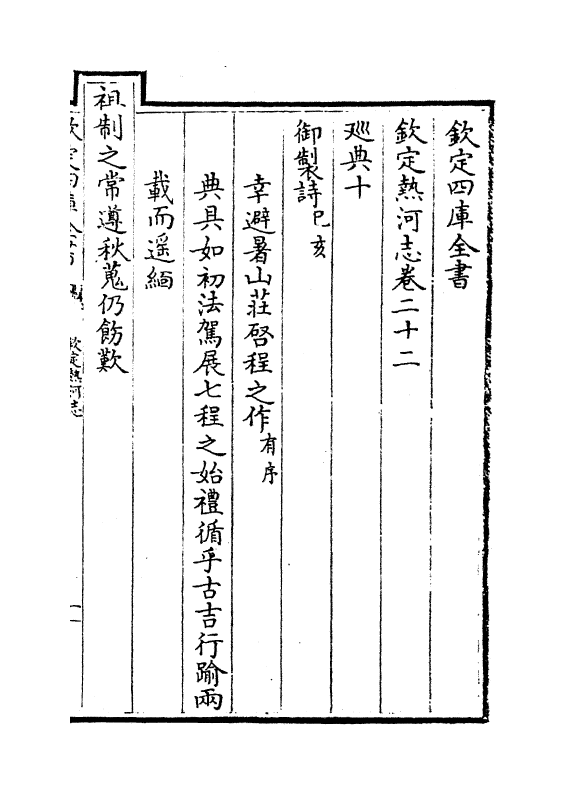 欽定四庫全書
欽定熱河志卷二十二
廵典十
御製詩己亥
幸避暑山莊啓程之作有序
典具如初法駕展七程之始禮循乎古吉行踰兩
載而遥緬
祖制之常遵秋蒐仍飭歎
欽定四庫全書
欽定熱河志
一